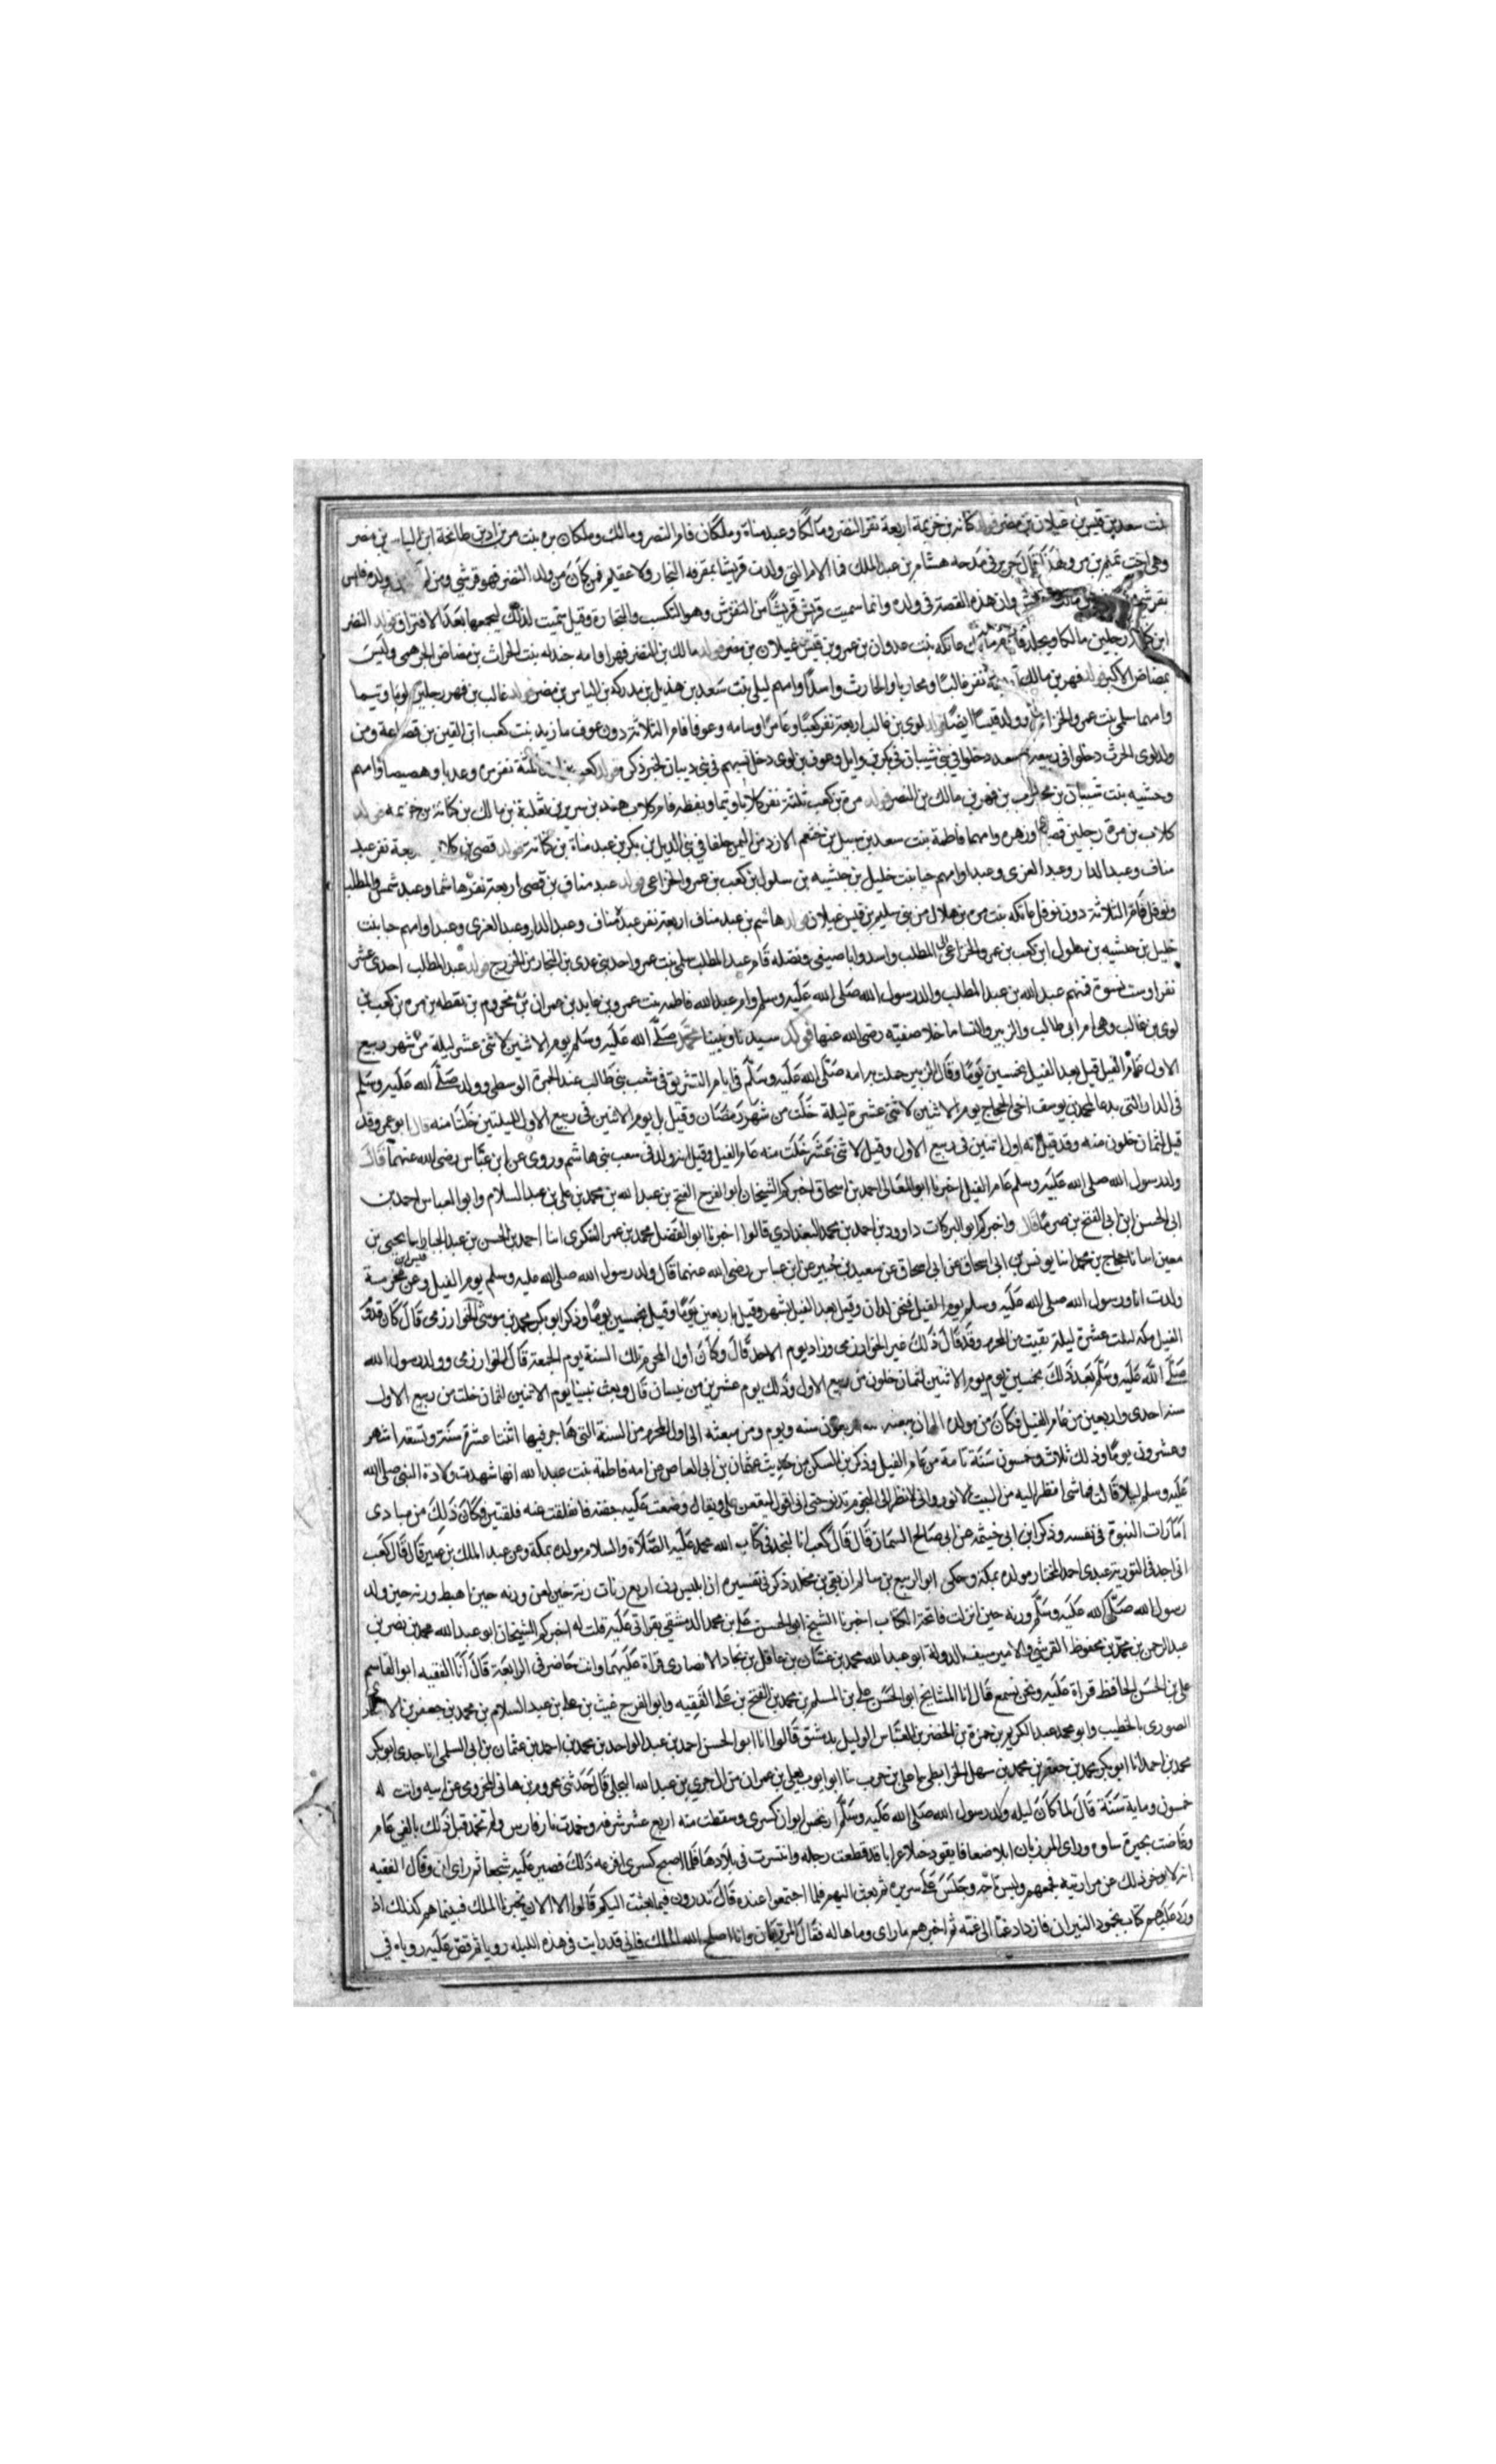 بنت سعد بن قيس بن عيلان بن مضر فولد كنانة بن خزيمة اربعة نفر النضر ومالكا وعبد مناة وملكان فام النضر ومالك وملكان بره بنت مر بن اد بن طابخة ابن الياس بن مضر
وهي اخت تميم بن مر ولهذا قال جرير في مدحه هشام بن عبد الملك فما الام التي ولدت قريشا بمقرفه النجار ولا عقيم فمن كان من ولد النضر فهو قرشي ومن لم ولده فليس
بقرشي مالك وان هذه القصة في ولده وانما سميت قريش قريشا من التقرش وهو التكسب والتجارة وقيل سميت لذلك لتجمعها بعد الافتراق فولد النضر
ابن كنانة رجلين مالكا ويخلد فام مالك عاتكه بنت عدوان بن عمرو بن قيس عيلان بن مضر فولد مالك بن النضر فهرا وامه جندله بنت الحراث بن مضاض الجرهمي وليس
بمضاض الاكبر فولد فهر بن مالك نفر غالبا ومحاربا والحارث واسدا وامهم ليلى بنت سعد بن هذيل بن مدركه بن الياس بن مضر فولد غالب بن فهر رجلين لويا وتيما
وامهما سلمى بنت عمرو الخزاعي وولد قيسا ايضا فولد لوي بن غالب اربعة نفر كعبا وعامرا وسامه وعوفا فام الثلاثة دون عوف ماريه بنت كعب ابن القين بن قضاعة ومن
ولد لوى الحرث دخلوا في ربيعة وسعد دخلوا في بني شيبان في بكر بن وايل وعوف بن لوى دخل نسبهم في بني ديبان لخبر ذكر فولد كعب بن ثلثة نفر مره وعديا وهصيصا وامهم
وحشيه بنت شيبان بن محارب بن فهر بن مالك بن النضر فولد مرة بن كعب ثلثة نفر كلابا وتيما ويقظه فام كلاب هند بن سرير بن ثعلبة بن مالك بن كنانة بن خزيمه فولد
كلاب بن مرة رجلين قصيا وزهره وامهما فاطمة بنت سعد بن سيل بن خثعم الازد من اليمن حلفا في بني الديل بن بكر بن عبد مناة بن كنانة فولد قصى بن كلاب اربعة نفر عبد
مناف وعبد الدار وعبد العزى وعبدا وامهم حبا بنت خليل بن حبشيه بن سلول بن كعب بن عمرو الخزاعي فولد عبد مناف بن قصى اربعة نفر هاشما وعبد شمس والمطلب
ونوفل فام الثلاثة دون نوفل عاتكه بنت مره بن هلال من بني سليم بن قيس عيلان فولد هاشم بن عبد مناف اربعة نفر عبد مناف وعبد الدار وعبد العزى وعبدا وامهم حبا بنت
خليل بن حبشيه بن سلول ابن كعب بن عمرو الخزاعي المطلب واسد وابا صيفى ونضله فام عبد المطلب سلمى بنت عمرو احد بني عدي بن النجار من الخزرج فولد عبد المطلب احدى عشر
نفرا وست نسوة فمنهم عبد الله بن عبد المطلب والد رسول الله صلى الله عليه وسلم وام عبد الله فاطمه بنت عمرو بن عايد بن عمران بن مخزوم بن يقظه بن مره بن كعب بن
لوى بن غالب وهي ام ابي طالب والزبير والنسا ما خلا صفيه رضى الله عنها فولد سيدنا ونبينا محمد صلى الله عليه وسلم يوم الاثنين لاثنتي عشر ليلة من شهر ربيع
الاول عام الفيل قيل بعد الفيل بخمسين يوما وقال الزبير حملت به امه صلى الله عليه وسلم في ايام التشريق في شعب بني طالب عند الجمرة الوسطى وولد صلى الله عليه وسلم
في الدار التي بدعا لمحمد بن يوسف اخي الحجاج يوم الاثنين لاثنتي عشرة ليلة خلت من شهر رمضان وقيل بل يوم الاثنين في ربيع الاول لليلتين خلتا منه قال ابو عمر وقد
قيل لثمان خلون منه وقد قيل انه اول اثنين في ربيع الاول وقيل لاثنتي عشر خلت منه عام الفيل وقيل انه ولد في سعب بني هاشم وروى عن ابن عباس رضى الله عنهما قال
ولد رسول الله صلى الله عليه وسلم عام الفيل اخبرنا ابو المعالي احمد بن اسحاق اخبركم الشيخان ابو الفرج الفتح بن عبد الله بن محمد بن علي بن عبد السلام وابو العباس احمد بن
ابي الحسن ابن ابي الفتح بن صرما قال واخبركم ابو البركات داوود بن احمد بن محمد البغدادي قالوا اخبرنا ابو الفضل محمد بن عمر السكرى انا احمد بن الحسن بن عبد الجبار نا يحيى بن
معين انا نا حجاج بن محمد انبا يونس بن ابي اسحاق عن ابي اسحاق عن سعيد بن جبير عن ابن عباس رضى الله عنهما قال ولد رسول الله صلى الله عليه وسلم يوم الفيل وعن قيس بن مخرمة
ولدت انا ورسول الله صلى الله عليه وسلم يوم الفيل فنحن لدان وقيل بعد الفيل بشهر وقيل باربعين يوما وقيل بخمسين يوما وذكر ابو بكر محمد بن موسى الخوارزمي قال كان قدوم
الفيل مكه لثلث عشرة ليلة بقيت من المحرم وقد قال ذلك غير الخوارزمي وزاد يوم الاحد قال وكان اول المحرم تلك السنة يوم الجمعة قال الخوارزمي وولد رسول الله
صلى الله عليه وسلم بعد ذلك بخمسين يوم يوم الاثنين لثمان خلون من ربيع الاول وذلك يوم عشرين من نيسان قال وبعث نبينا يوم الاثنين لثمان خلت من ربيع الاول
سنة احدى واربعين من عام الفيل فكان من مولده الى ان بعثه الله اربعون سنه ويوم ومن مبعثه الى اول المحرم من السنة التي هاجر فيها اثنتا عشرة سنة وتسعة اشهر
وعشرون يوما وذلك ثلاث وخمسون سنة تامة من عام الفيل وذكر بن السكن من حديث عثمان بن ابي العاص عن امه فاطمة بنت عبد الله انها شهدت ولادة النبي صلى الله
عليه وسلم ليلا قالت فما شى انظر اليه من البيت الا نور واني لانظر الى النجوم تدنو حتى انى اقول ليقعن علي ويقال وضعت عليه جفنة فانفلقت عنه فلقتين فكان ذلك من مبادى
امارات النبوة في نفسه وذكر ابن ابي خيثمه عن ابي صالح السمان قال قال كعب انا لنجد في كتاب الله محمد عليه الصلاة والسلام مولده بمكة وعن عبد الملك بن عمير قال قال كعب
انى اجد في التورية عبدى احمد المختار مولده بمكة وحكى ابو الربيع بن سالم ان بقي بن مخلد ذكر في تفسيره ان ابليس رن اربع رنات رنة حين لعن ورنه حين اهبط ورنة حين ولد
رسول الله صلى الله عليه وسلم ورنه حين انزلت فاتحة الكتاب اخبرنا الشيخ ابو الحسن علي بن محمد الدمشقي بقراتي عليه قلت له اخبركم الشيخان ابو عبد الله محمد بن نصر بن
عبد الرحمن بن محمد بن محفوظ القرشي والامير سيف الدولة ابو عبد الله محمد بن غسان بن عاقل بن نجاد الانصارى قراة عليهما وانت حاضر في الرابعة قال انا الفقيه ابو القاسم
علي بن الحسن الحافظ قراة عليه ونحن نسمع قال انا المشايخ ابو الحسن علي بن المسلم بن محمد بن الفتح بن علي الفقيه وابو الفرج غيث بن علي بن عبد السلام بن محمد بن جعفر بن
الصورى الخطيب وابو محمد عبد الكريم بن حمزة بن الخضر بن العباس الوليل بدمشق قالوا انا ابو الحسن احمد بن عبد الواحد بن محمد بن احمد بن عثمان بن ابي السلمي انا جدى ابو بكر
محمد بن احمد انا ابو بكر محمد بن جعفر بن محمد بن سهل الخرايطي نا علي بن حرب نا ابو ايوب يعلي بن عمران من ال جرير بن عبد الله البجلي قال حدثني مخزوم بن هاني المخزومي عن ابيه واتت له
خمسون وماية سنة قال لما كان ليله ولد رسول الله صلى الله عليه وسلم ارتجس ايوان كسرى وسقطت منه اربع عشر شرفه وخمدت نار فارس ولم تخمد قبل ذلك بالفي عام
وغاضت بحيرة ساوه وراى الموبذان ابلا صعابا يقود خيلا عرابا قد قطعت رجله وانتسرت في بلادها فلما اصبح كسرى افزعه ذلك فصبر عليه تشجعا ثم راى ان وقال الفقيه
انه لا يدخر ذلك عن مرازبته فجمعهم ولبس تاجه وجلس على سريره ثم بعث اليهم فلما اجتمعوا عنده قال تدرون فيما بعثت اليكم قالوا لا الا ان يخبرنا الملك فبينما هم كذلك اذ
ورد عليهم كتاب بخمود النيران فازداد غما الى غمه ثم اخبرهم ما راى وما هاله فقال الموبذان وانا اصلح الله الملك فاني قد رايت في هذه الليله رويا ثم قص عليه روياه في